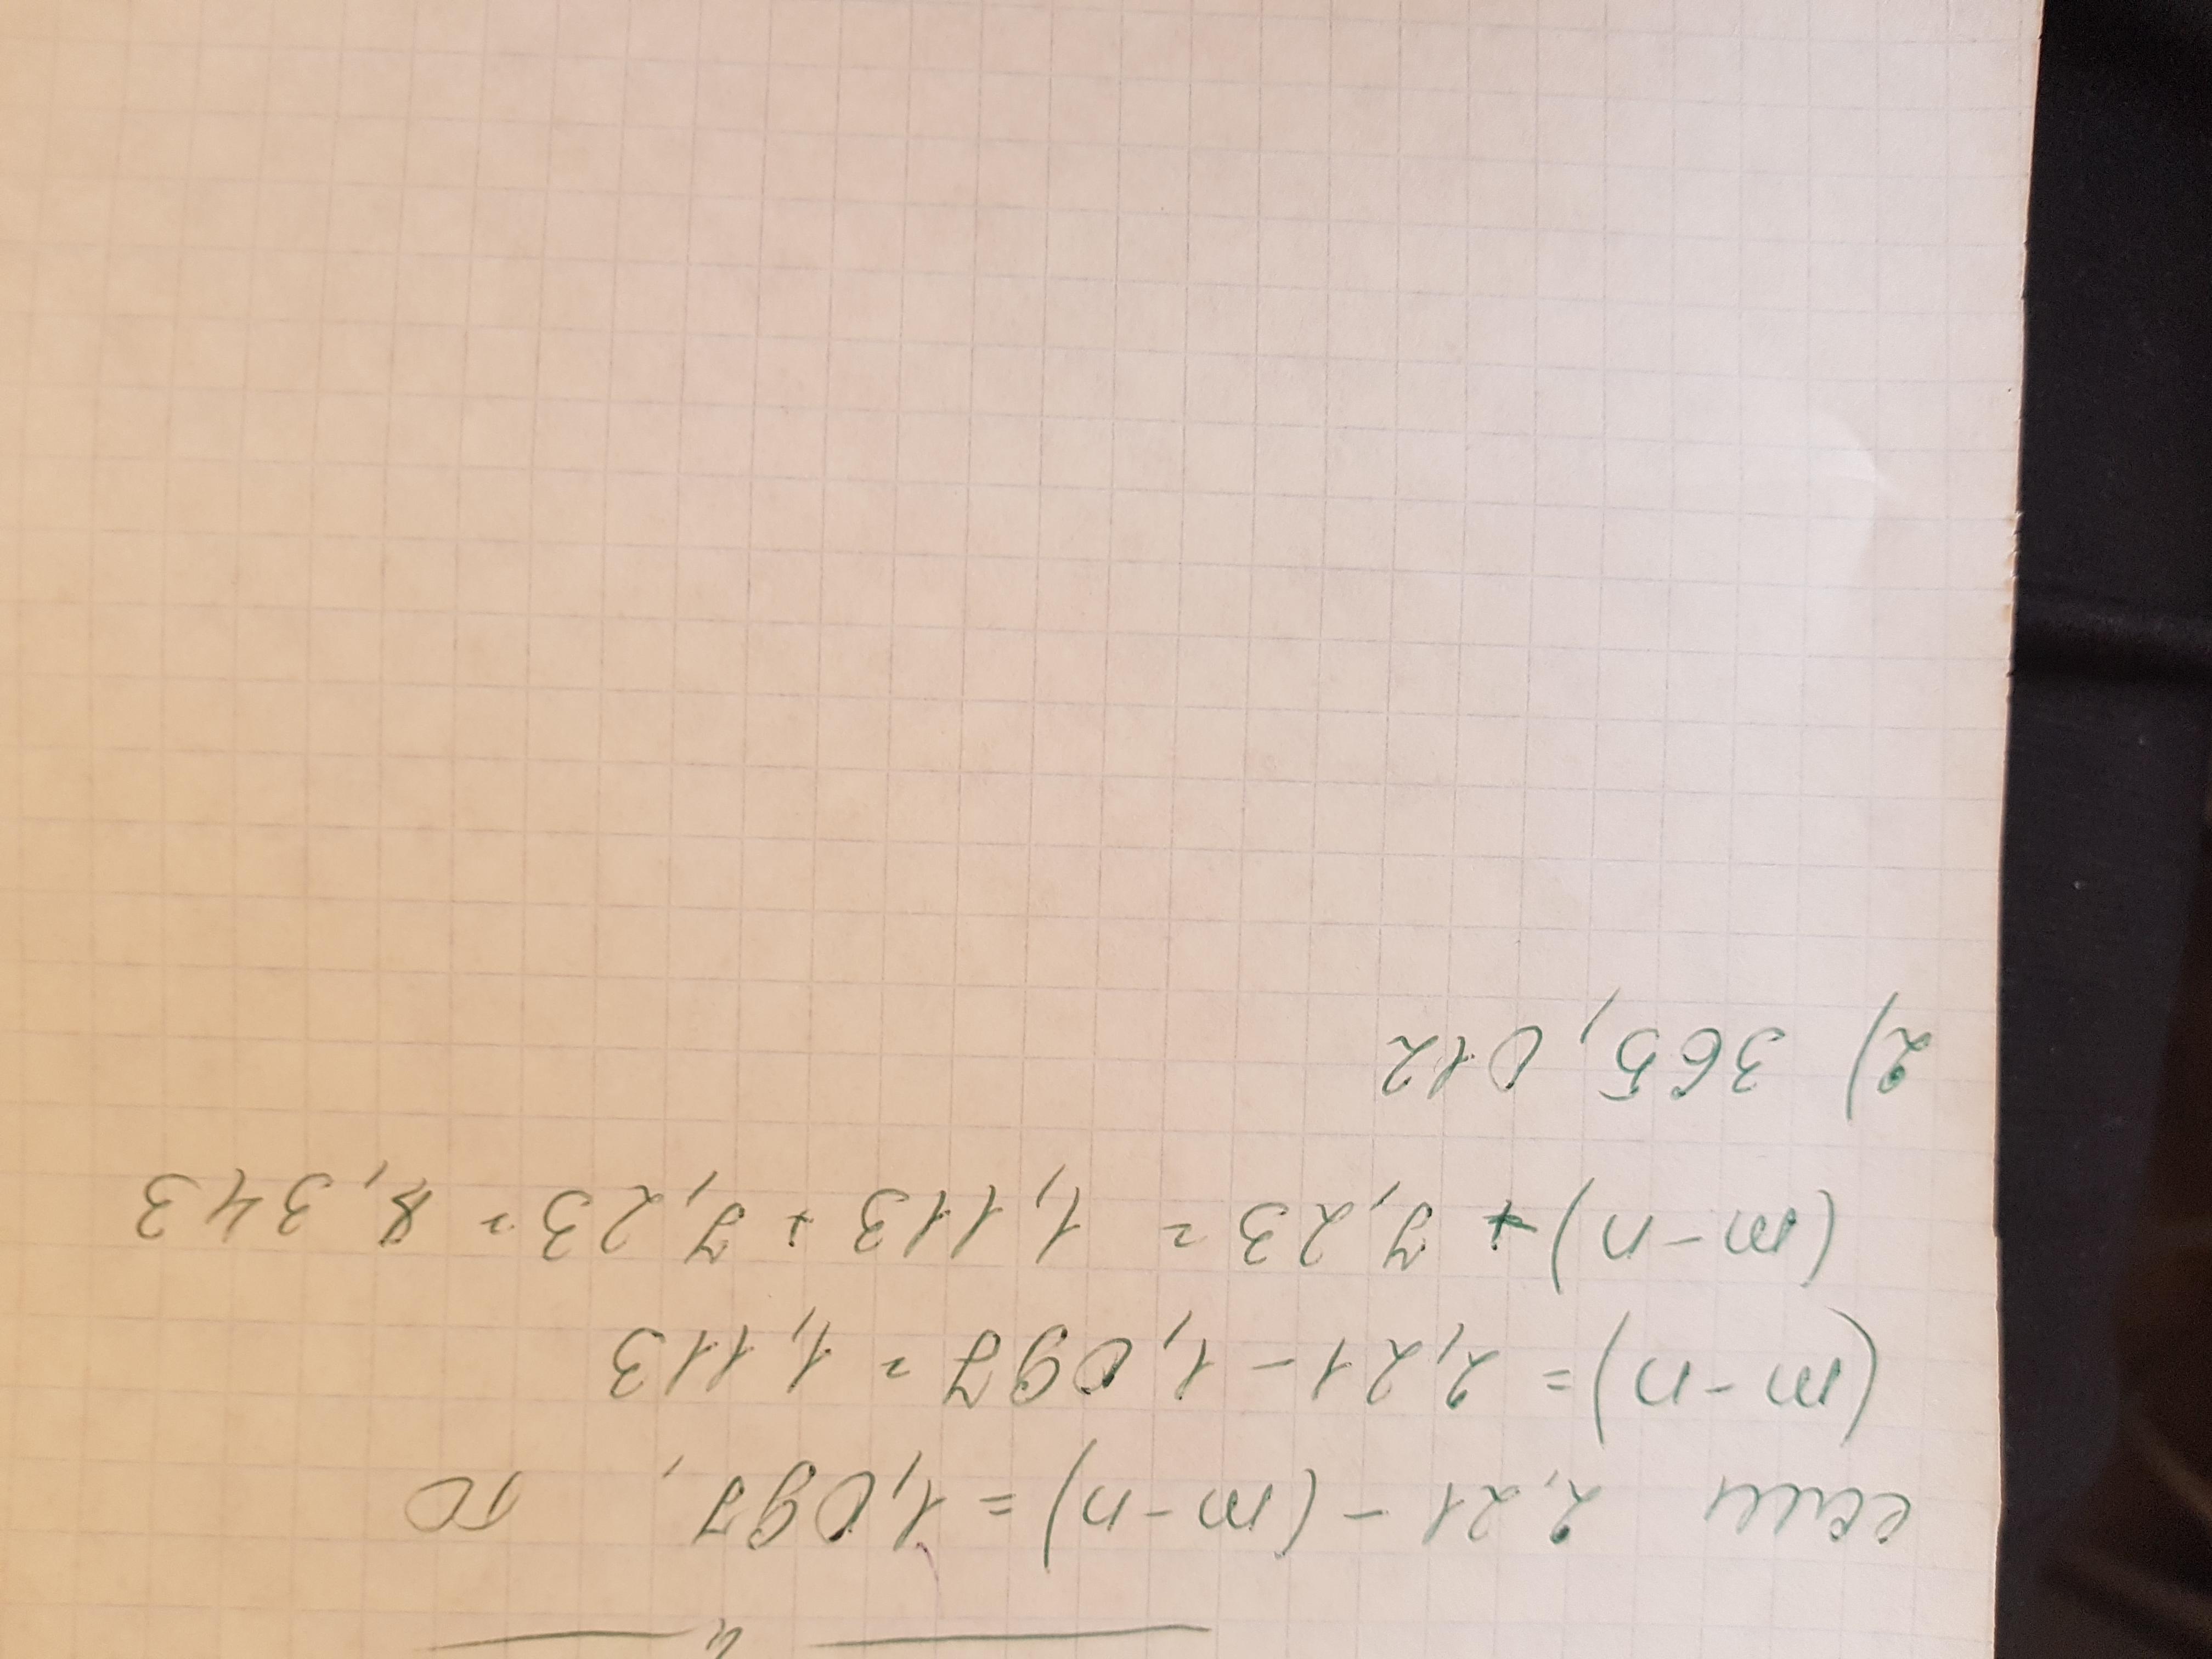 если 2,21 - (m-n) = 1,097, то
(m-n) = 2,21 - 1,097 = 1,113
(m-n) + 7,23 = 1,113 + 7,23 = 8,343
2) 365,012